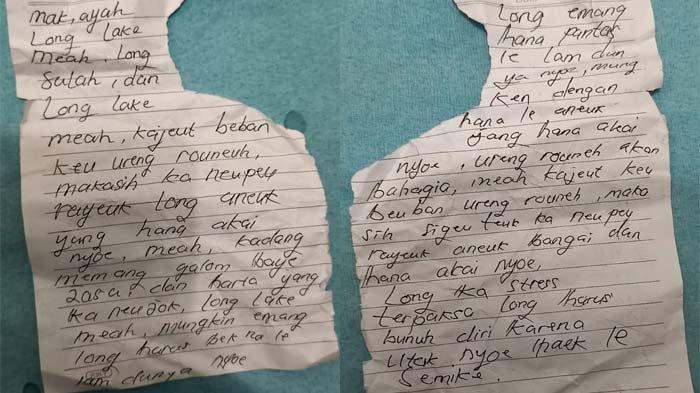 mak, ayah
Long lake
Meah. long
Salah, dan
Long lake
meah, kajeut beban
keu ureng rouneuh,
makasih ka neupey
rayeuk long aneuk
yang hana akai
nyoe, meah, kadang
memang galom baye
Jasa, dan harta yang
ka neujok, long lake
meah, mungkin emang
long harus bek na le
lam dunya nyoe
Long emang
hana pantas
le lam dun
ya nyoe, mung
ken dengan
hana le aneuk
yang hana akai
nyoe, ureng rouneh akan
bahagia, meah kajeut keu
beuban ureng rouneh, maka
sih sigeu teuk ka neupey
rayeuk aneuk bangai dan
hana akai nyoe,
Long ka stress
terpaksa long harus
bunuh diri karena
utak nyoe haek le
semike.